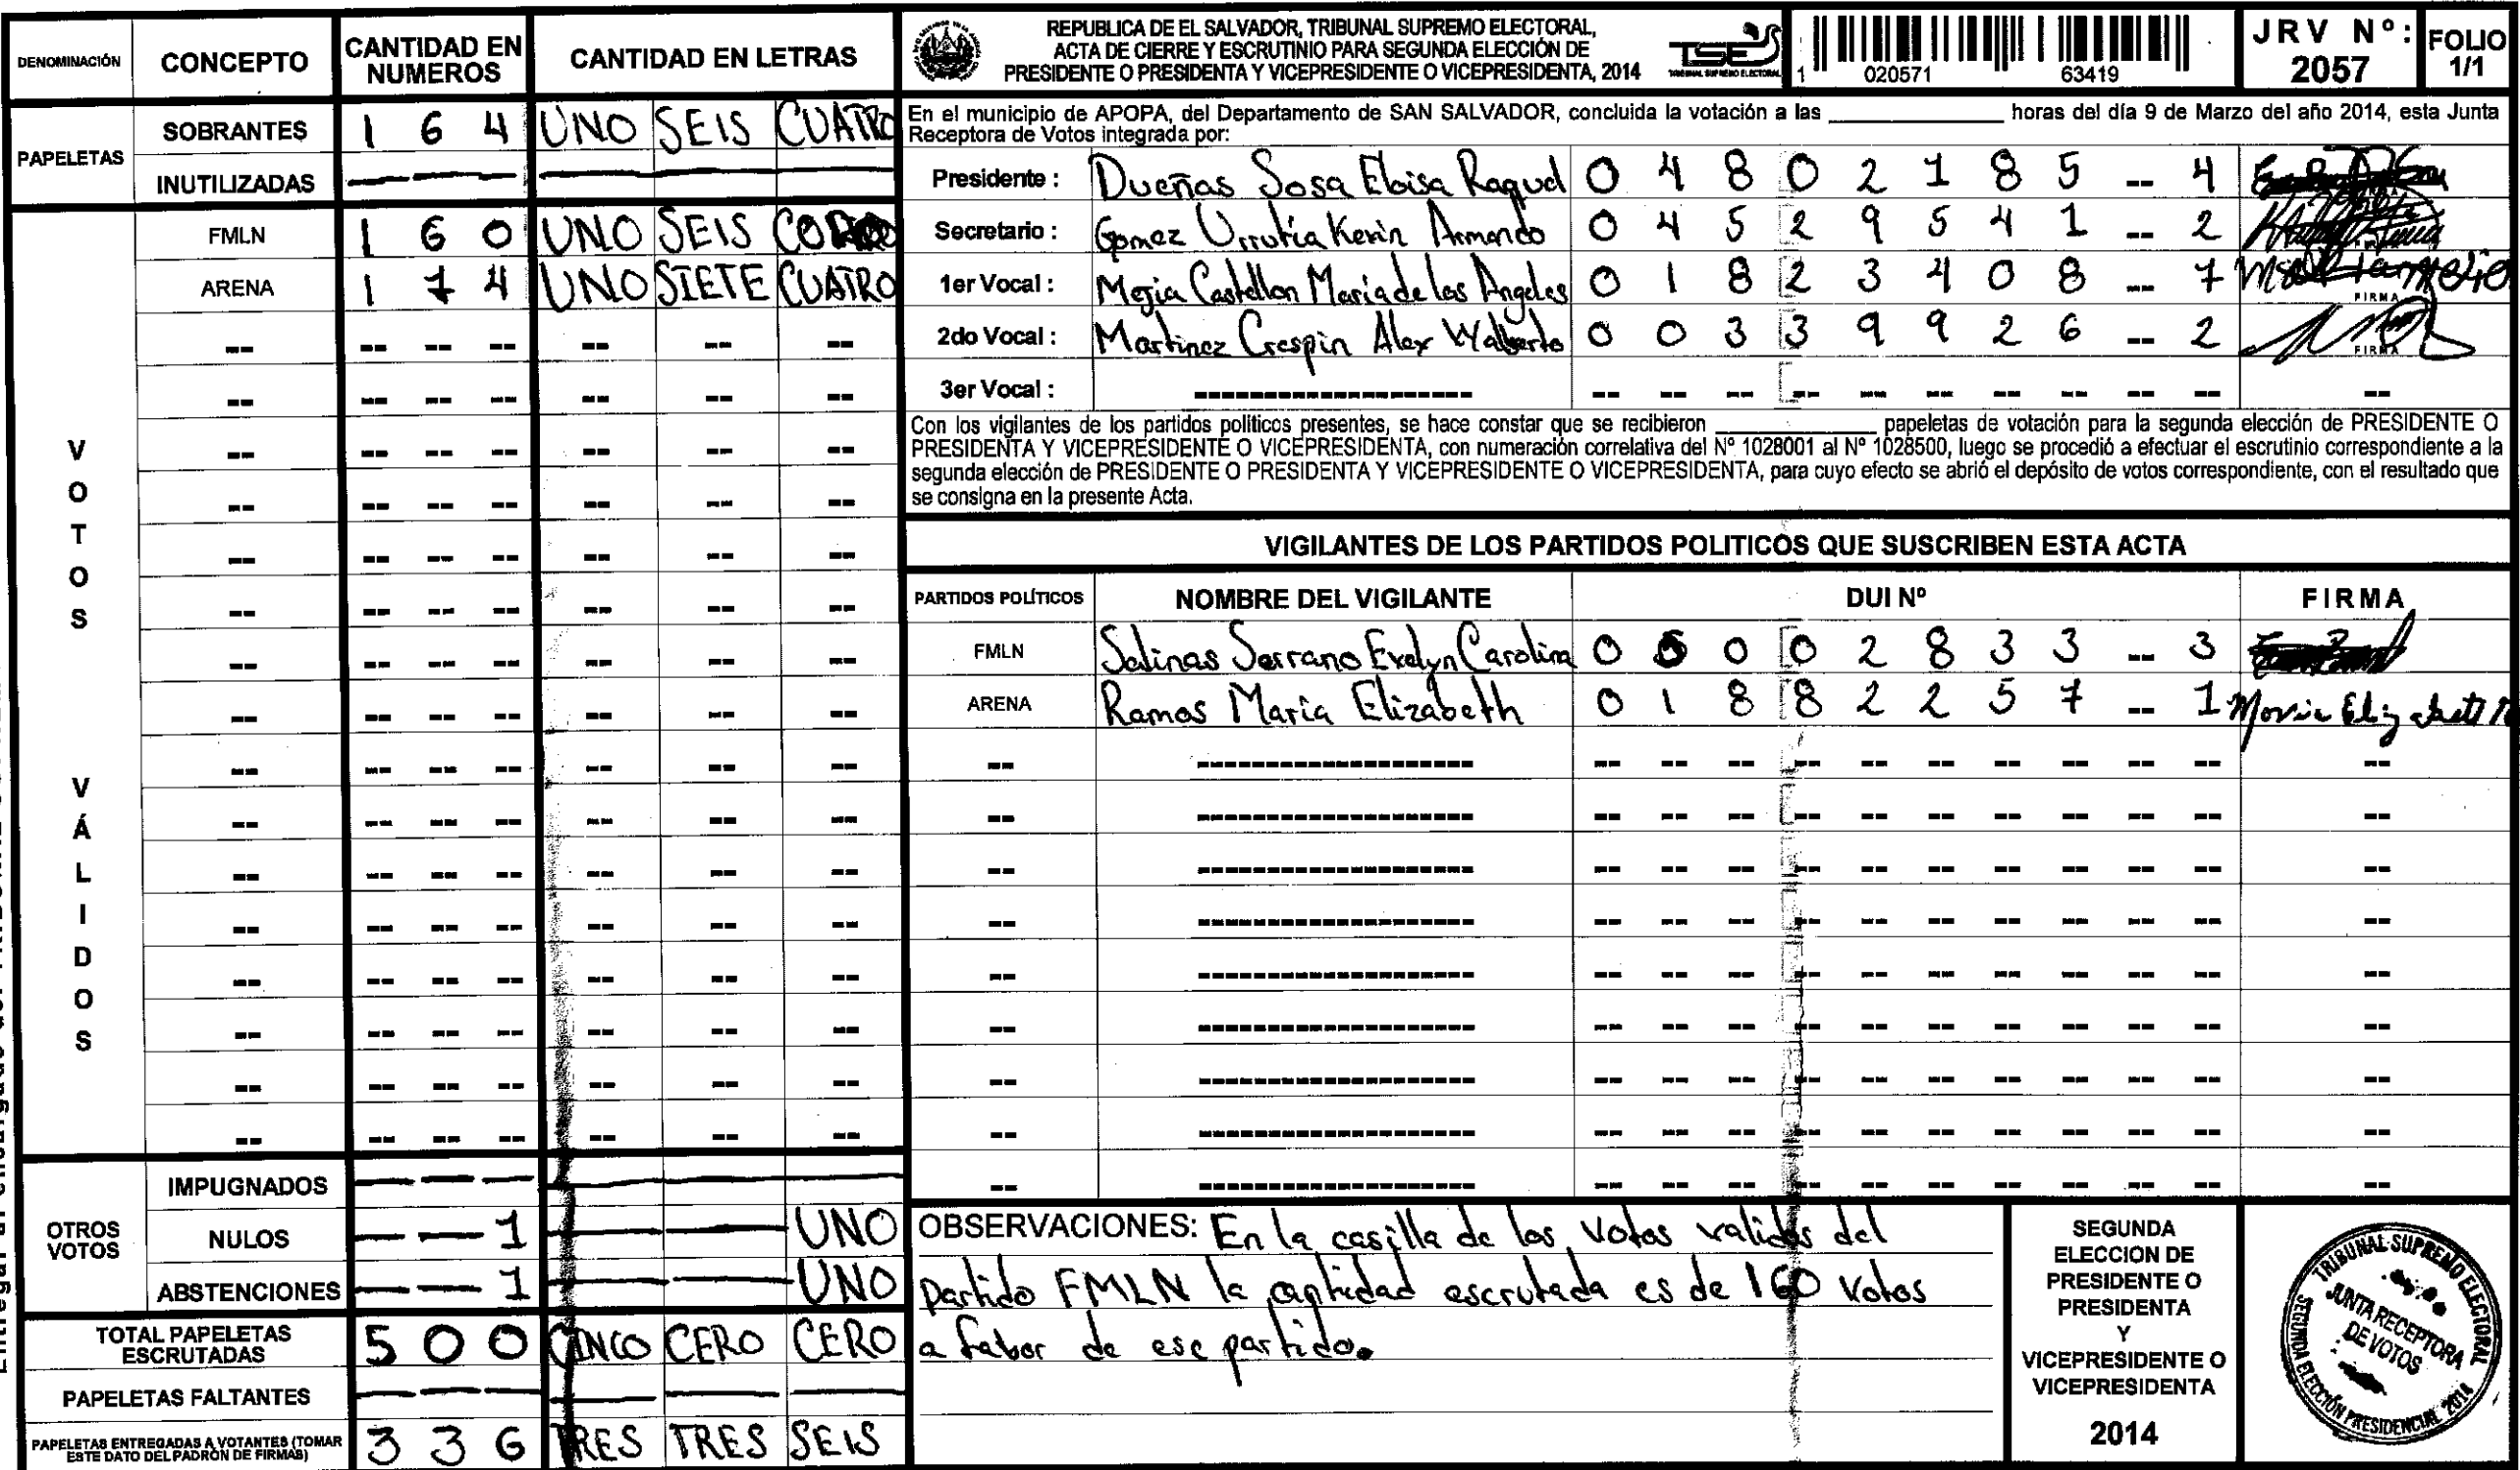 DENOMINACIÓN CONCEPTO CANTIDAD EN NUMEROS CANTIDAD EN LETRAS
PAPELETAS
SOBRANTES 1 6 4 UNO SEIS CUATRO
INUTILIZADAS
VOTOS VÁLIDOS
FMLN 1 6 0 UNO SEIS
ARENA 1 7 4 UNO SIETE CUATRO
OTROS VOTOS
IMPUGNADOS
NULOS 1 UNO
ABSTENCIONES 1 UNO
TOTAL PAPELETAS ESCRUTADAS 5 0 0 CINCO CERO CERO
PAPELETAS FALTANTES
PAPELETAS ENTREGADAS A VOTANTES (TOMAR ESTE DATO DEL PADRÓN DE FIRMAS) 3 3 6 TRES TRES SEIS
REPUBLICA DE EL SALVADOR, TRIBUNAL SUPREMO ELECTORAL,
ACTA DE CIERRE Y ESCRUTINIO PARA SEGUNDA ELECCIÓN DE
PRESIDENTE O PRESIDENTA Y VICEPRESIDENTE O VICEPRESIDENTA, 2014
TSE
TRIBUNAL SUPREMO ELECTORAL
1 020571 63419
JRV Nº: 2057
FOLIO 1/1
En el municipio de APOPA, del Departamento de SAN SALVADOR, concluida la votación a las ____________ horas del día 9 de Marzo del año 2014, esta Junta
Receptora de Votos integrada por:
Presidente : Dueñas Sosa Eloisa Raquel 0 4 8 0 2 1 8 5 -- 4
Secretario : Gomez Urrutia Kevin Armando 0 4 5 2 9 5 4 1 -- 2
1er Vocal : Mejia Castellon Maria de los Angeles 0 1 8 2 3 4 0 8 -- 7 FIRMA
2do Vocal : Martinez Crespin Alex Walberto 0 0 3 3 9 9 2 6 -- 2 FIRMA
3er Vocal :
Con los vigilantes de los partidos políticos presentes, se hace constar que se recibieron ____________ papeletas de votación para la segunda elección de PRESIDENTE O
PRESIDENTA Y VICEPRESIDENTE O VICEPRESIDENTA, con numeración correlativa del Nº 1028001 al Nº 1028500, luego se procedió a efectuar el escrutinio correspondiente a la
segunda elección de PRESIDENTE O PRESIDENTA Y VICEPRESIDENTE O VICEPRESIDENTA, para cuyo efecto se abrió el depósito de votos correspondiente, con el resultado que
se consigna en la presente Acta.
VIGILANTES DE LOS PARTIDOS POLITICOS QUE SUSCRIBEN ESTA ACTA
PARTIDOS POLÍTICOS NOMBRE DEL VIGILANTE DUI Nº FIRMA
FMLN Salinas Serrano Evelyn Carolina 0 5 0 0 2 8 3 3 -- 3
ARENA Ramos Maria Elizabeth 0 1 8 8 2 2 5 7 -- 1
OBSERVACIONES: En la casilla de los votos validos del
partido FMLN la cantidad escrutada es de 160 votos
a fabor de ese partido.
SEGUNDA
ELECCION DE
PRESIDENTE O
PRESIDENTA
Y
VICEPRESIDENTE O
VICEPRESIDENTA
2014
TRIBUNAL SUPREMO ELECTORAL
JUNTA RECEPTORA
DE VOTOS
SEGUNDA ELECCIÓN PRESIDENCIAL 2014